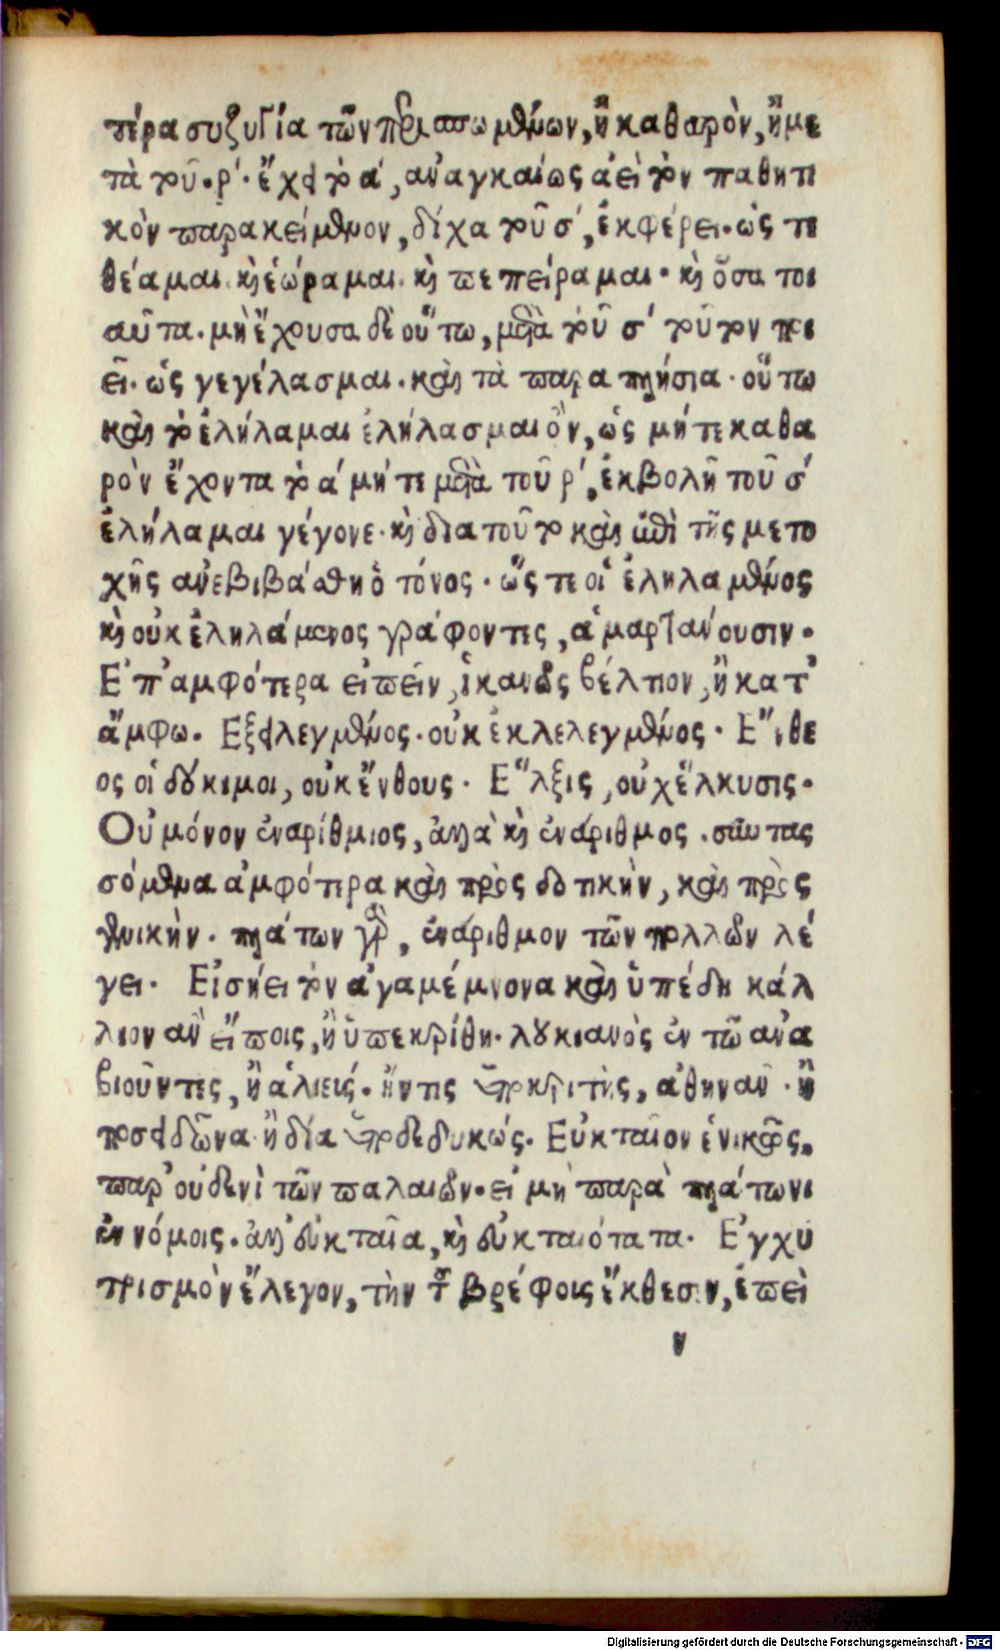 τέρα συζυγία τῶν περισπωμένων, ἢ καθαρὸν, ἢ με
τὰ τοῦ. ρ΄. ἔχει τὸ α΄, ἀναγκαίως ἀεὶ τὸν παθητι
κὸν παρακείμενον, δίχα τοῦ σ΄, ἐκφέρει. ὡς τε
θέαμαι. καὶ ἑώραμαι. καὶ πεπείραμαι. καὶ ὅσα τοι
αῦτα. μὴ ἔχουσα δὲ οὕτω, μετὰ τοῦ σ΄ τοῦτον ποι
εῖ. ὡς γεγέλασμαι. καὶ τὰ παραπλήσια. οὕτω
καὶ τὸ ἐλήλαμαι ἐλήλασμαι ὂν, ὡς μήτε καθα
ρὸν ἔχον τὸ α΄ μήτε μετὰ τοῦ ρ΄, ἐκβολῆ τοῦ σ΄
ἐλήλαμαι γέγονε. καὶ διατοῦτο καὶ ἐπὶ τῆς μετο
χῆς ἀνεβιβάσθη ὁ τόνος. ὥστε οἱ ἐληλαμένος
καὶ οὐκ ἐληλάμενος γράφοντες, ἁμαρτάνουσιν.
Ἐπ' ἀμφότερα εἰπεῖν, ἱκανῶς βέλτιον, ἢ κατ'
ἄμφω. Ἐξειλεγμένος. οὐκ ἐκλελεγμένος. Ἔνθε
ος οἱ δόκιμοι, οὐκ ἔνθους. Ἕλξις, οὐχ ἕλκυσις.
Οὐ μόνον ἐναρίθμιος, ἀλλὰ καὶ ἐνάριθμος. συντασ
σόμενα ἀμφότερα καὶ πρὸς δοτικὴν, καὶ πρὸς
γενικὴν. πλάτων γὰρ, ἐνάριθμον τῶν πολλῶν λέ
γει. Εἰσῄει τὸν ἀγαμέμνονα καὶ ὑπέδυ κάλ
λιον ἂν εἴποις, ἢ ὑπεκρίθη. λουκιανὸς ἐν τῶ ἀνα
βιοῦντες, ἢ ἁλιεῖς. ἤν τις ὑποκριτὴς, ἀθηνᾶν. ἢ
ποσειδῶνα ἢ δία ὑποδεδυκώς. Εὐκταῖον ἑνικῶς,
παρ' οὐδενὶ τῶν παλαιῶν. εἰ μὴ παρὰ πλάτωνι
ἐν νόμοις. ἀλλ' εὐκταῖα, καὶ εὐκταιότατα. Ἐγχυ
τρισμὸν ἔλεγον, τὴν τοῖς βρέφοις ἔκθεσιν, ἐπεὶ
ν
Digitalisierung gefördert durch die Deutsche Forschungsgemeinschaft - DFG